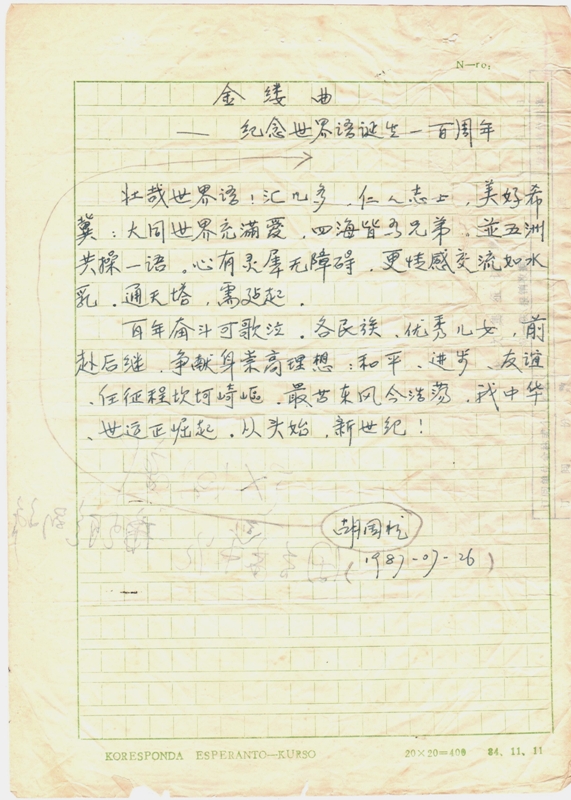 N—ro:
金缕曲
—— 纪念世界语诞生一百周年
壮哉世界语！汇几多、仁人志士，美好希
冀：大同世界充满爱，四海皆为兄弟。並五洲
共操一语。心有灵犀无障碍，更情感交流如水
乳。通天塔，需建起。
百年奋斗可歌泣。各民族、优秀儿女，前
赴后继，争献身崇高理想：和平、进步、友谊
、任征程坎坷崎岖。最苦东风今浩荡，我中华
、世运正崛起。从头始，新世纪！
胡国
(1987-07-26)
KORESPONDA ESPERANTO—KURSO
20×20=400 84.11.11